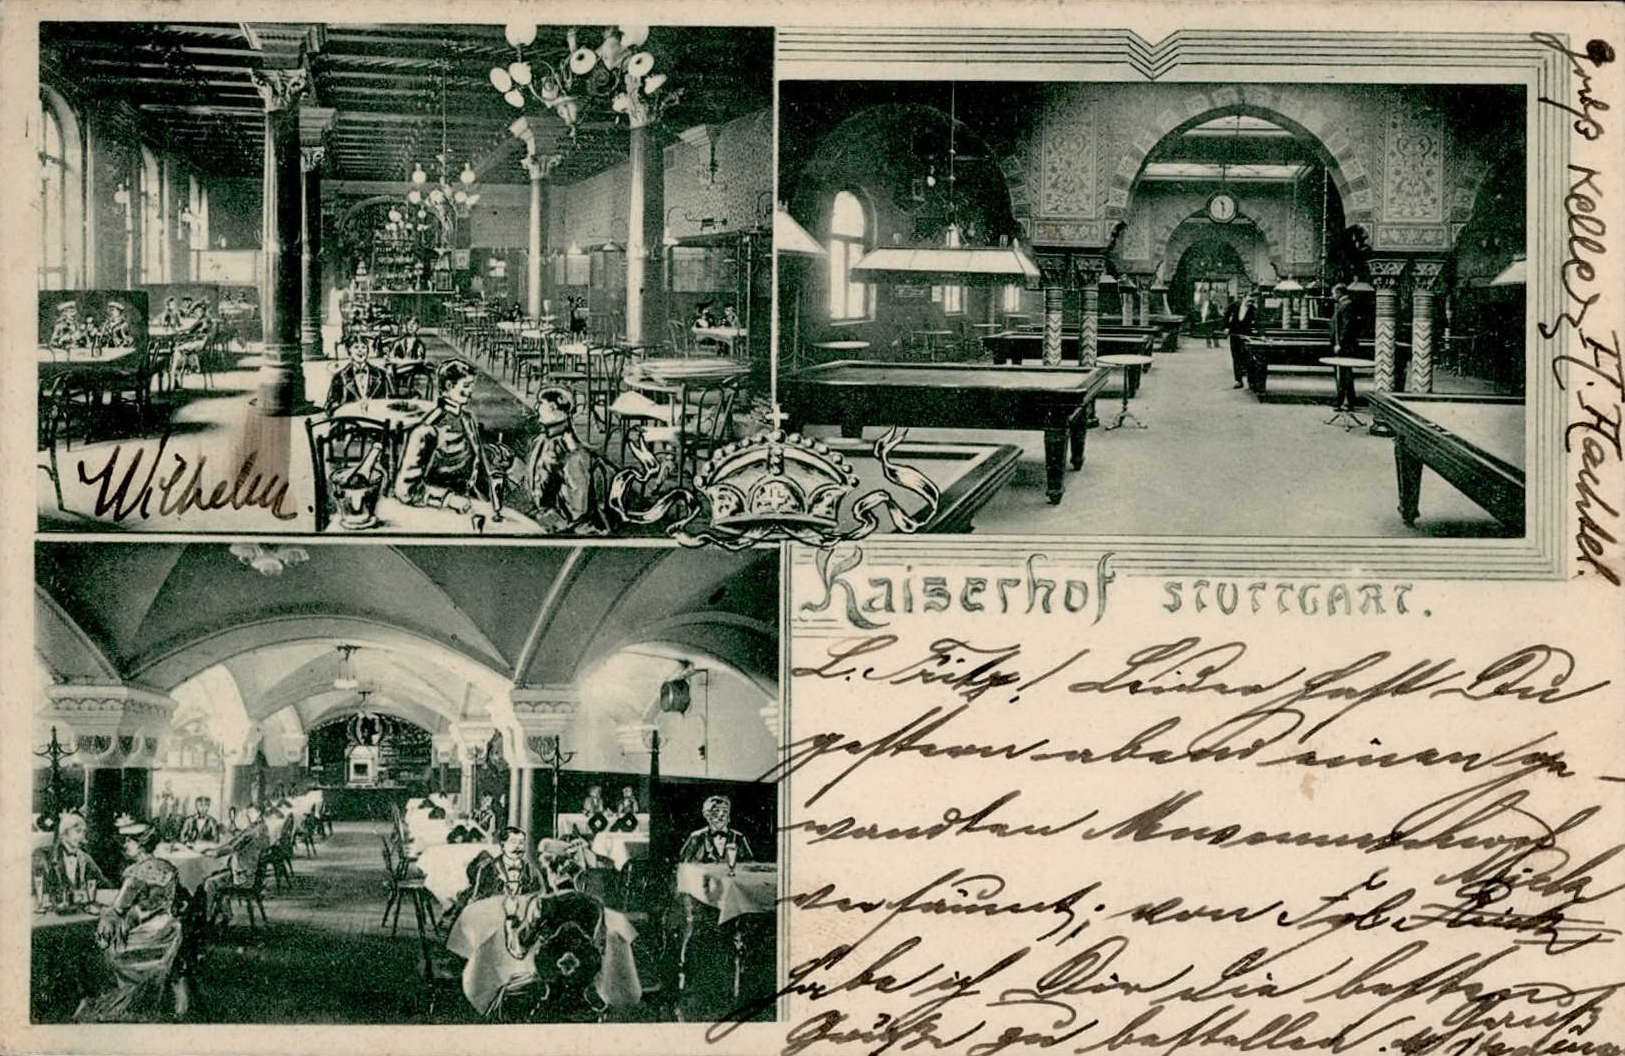 Wilhelm.
Kaiserhof STUTTGART.
L. Fritz! Leider hast Du
gestern abend einen ge-
wandten
versäumt; von Frl.
habe ich Dir die besten
Grüße zu bestellen.
Gruß
Gruß Keller H. Hachtel.